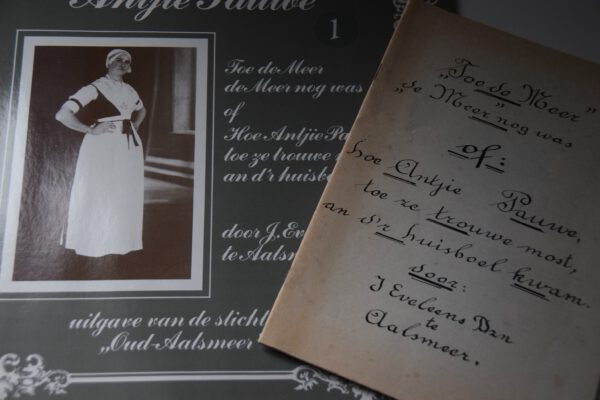 Antjie Pauwe
1
Toe de Meer
de Meer nog was
of
Hoe Antjie
toe ze trouwe
an d'r
door J.
te Aalsm
uitgave van de
„Oud-Aalsmeer
„Toe de Meer”
„de Meer nog was”
of:
hoe Antjie Pauwe,
toe ze trouwe most,
an d'r huisboel kwam.
door:
J Eveleens Dzn
te
Aalsmeer.